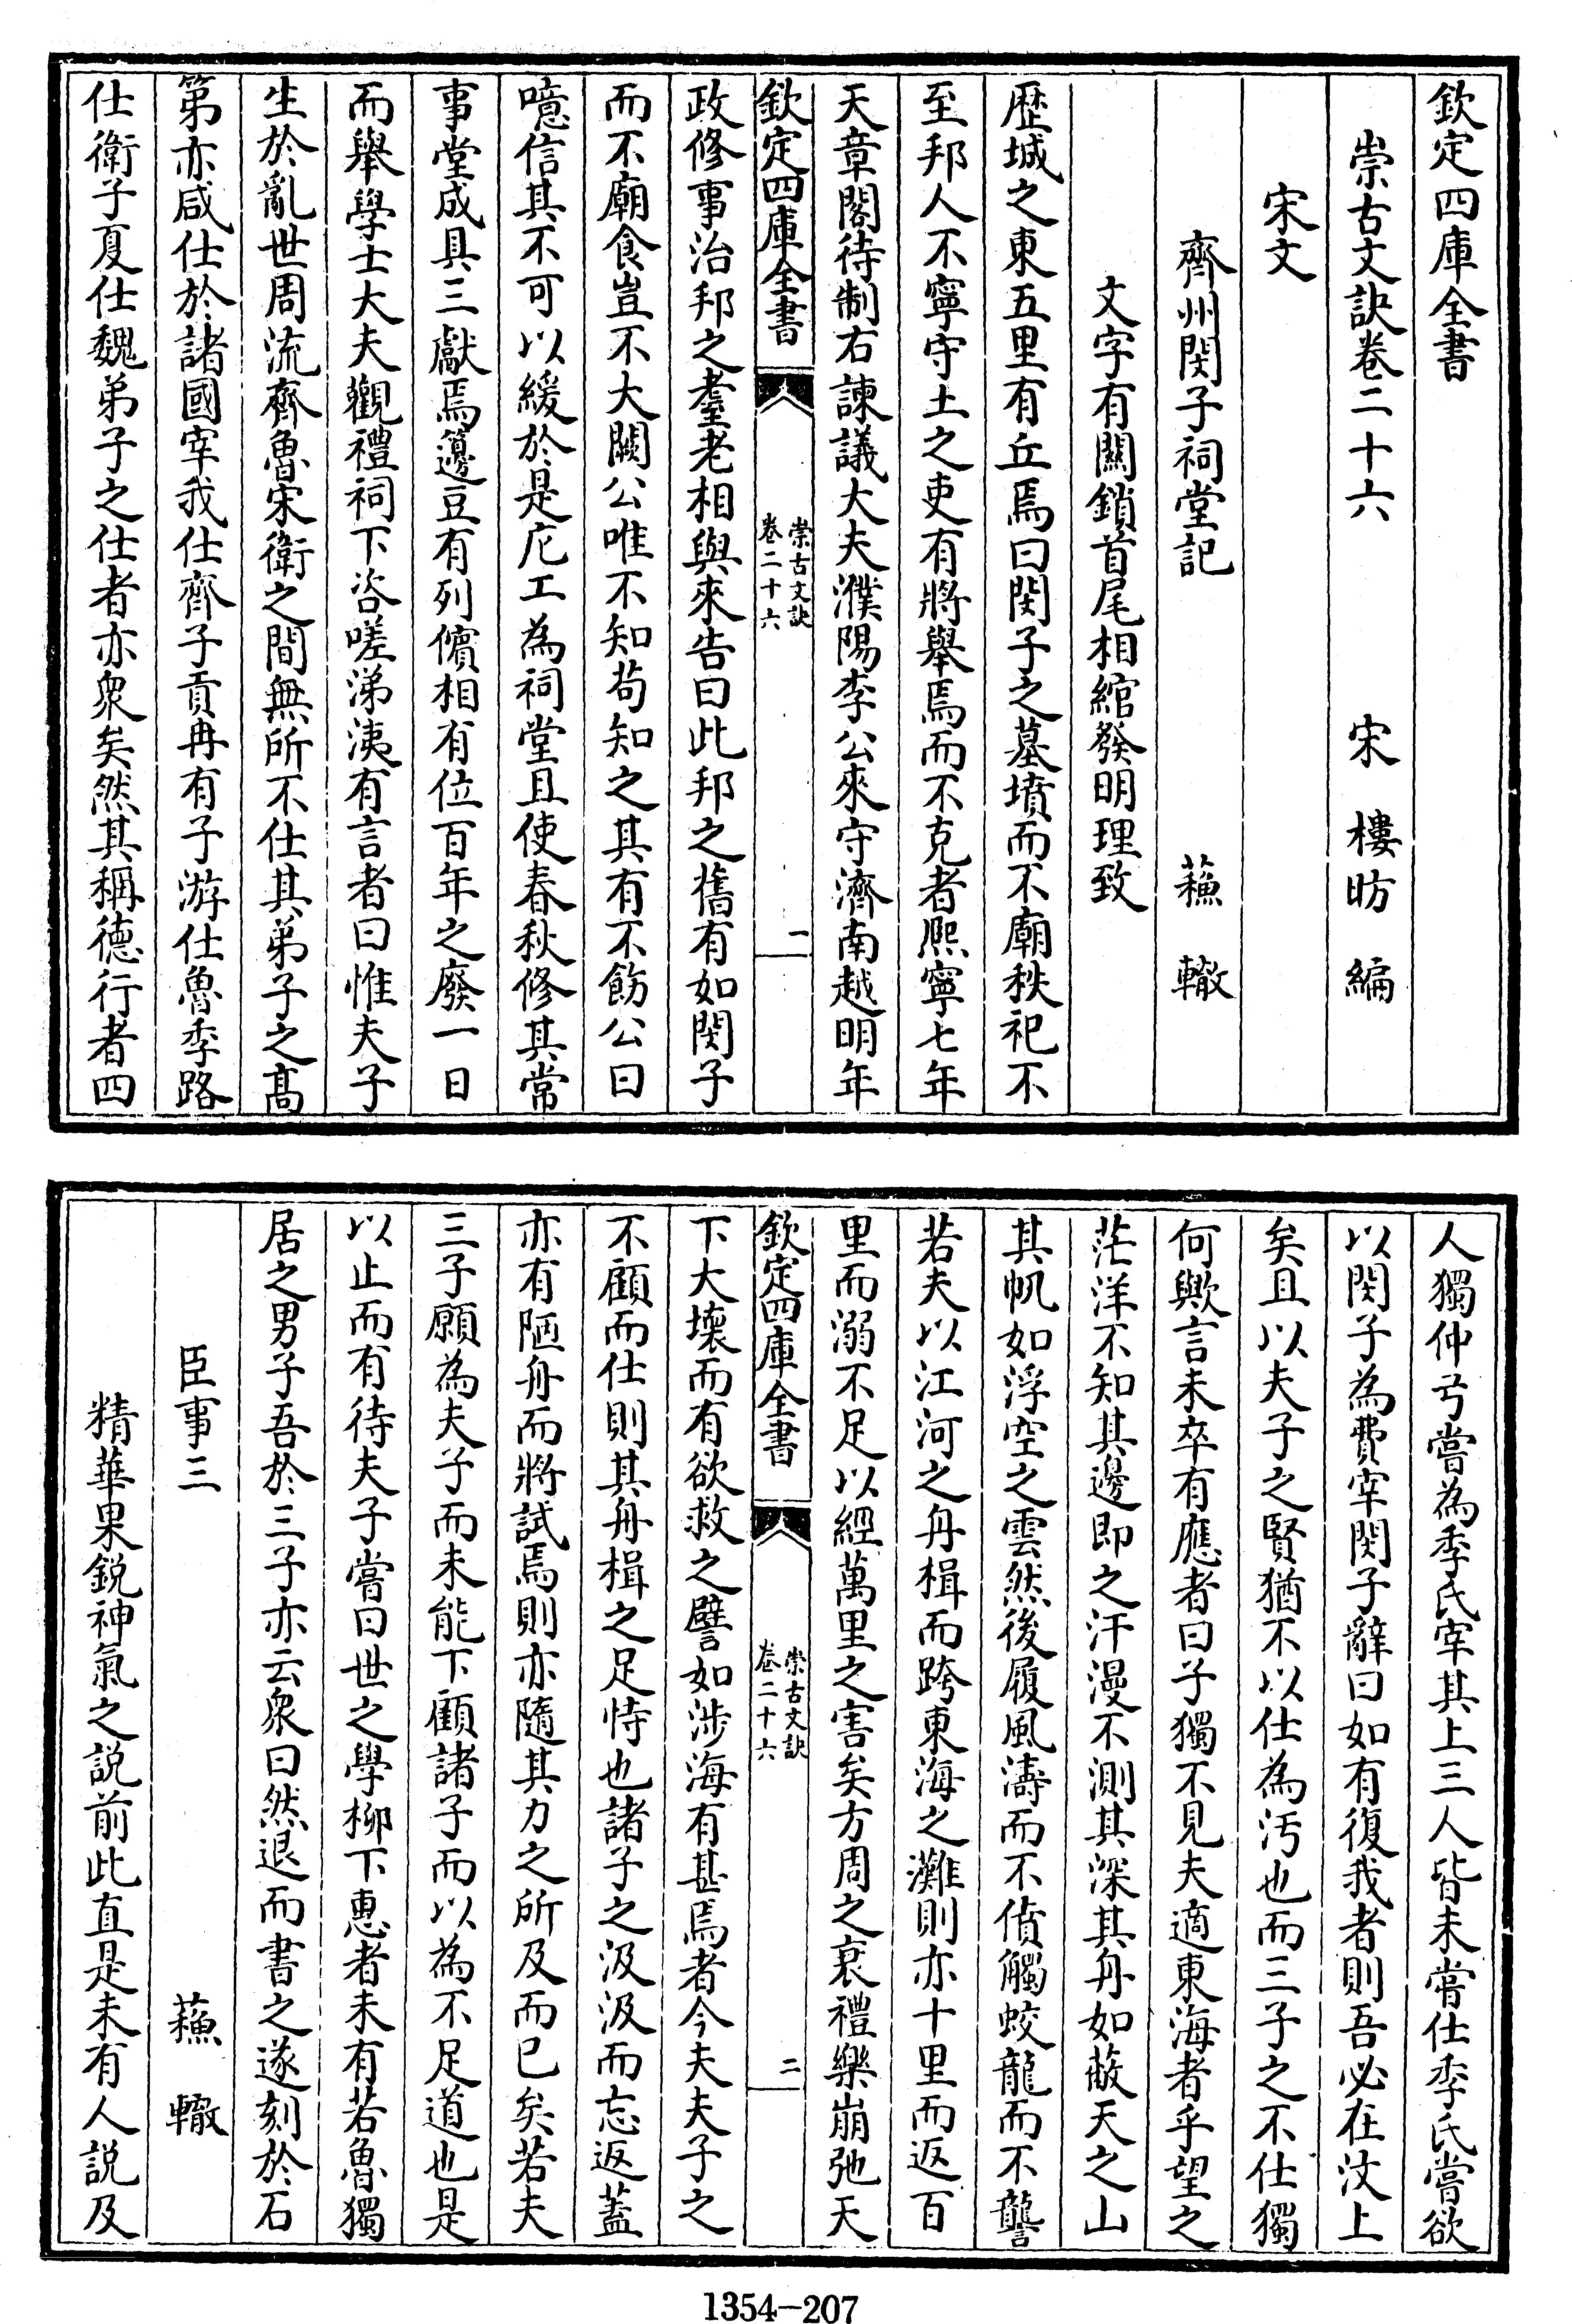 欽定四庫全書
崇古文訣卷二十六　宋　樓昉　編
宋文
齊州閔子祠堂記　蘇　轍
文字有關鎖首尾相綰發明理致
歷城之東五里有丘焉曰閔子之墓墳而不廟秩祀不
至邦人不寧守土之吏有將舉焉而不克者熙寧七年
天章閣待制右諫議大夫濮陽李公來守濟南越明年
欽定四庫全書　崇古文訣　卷二十六　一
政修事治邦之耋老相與來告曰此邦之舊有如閔子
而不廟食豈不大闕公唯不知苟知之其有不飭公曰
噫信其不可以緩於是庀工為祠堂且使春秋修其常
事堂成具三獻焉籩豆有列儐相有位百年之廢一日
而舉學士大夫觀禮祠下咨嗟涕洟有言者曰惟夫子
生於亂世周流齊魯宋衛之間無所不仕其弟子之髙
第亦咸仕於諸國宰我仕齊子貢冉有子游仕魯季路
仕衛子夏仕魏弟子之仕者亦衆矣然其稱德行者四
人獨仲弓嘗為季氏宰其上三人皆未嘗仕季氏嘗欲
以閔子為費宰閔子辭曰如有復我者則吾必在汶上
矣且以夫子之賢猶不以仕為汚也而三子之不仕獨
何歟言未卒有應者曰子獨不見夫適東海者乎望之
茫洋不知其邊即之汗漫不測其深其舟如蔽天之山
其帆如浮空之雲然後履風濤而不僨觸蛟龍而不讋
若夫以江河之舟楫而跨東海之灘則亦十里而返百
里而溺不足以經萬里之害矣方周之衰禮樂崩弛天
欽定四庫全書　崇古文訣　卷二十六　二
下大壞而有欲救之譬如涉海有甚焉者今夫夫子之
不顧而仕則其舟楫之足恃也諸子之汲汲而忘返蓋
亦有陋舟而將試焉則亦隨其力之所及而已矣若夫
三子願為夫子而未能下顧諸子而以為不足道也是
以止而有待夫子嘗曰世之學柳下惠者未有若魯獨
居之男子吾於三子亦云衆曰然退而書之遂刻於石
臣事三　蘇　轍
精華果銳神氣之説前此直是未有人說及
1354—207